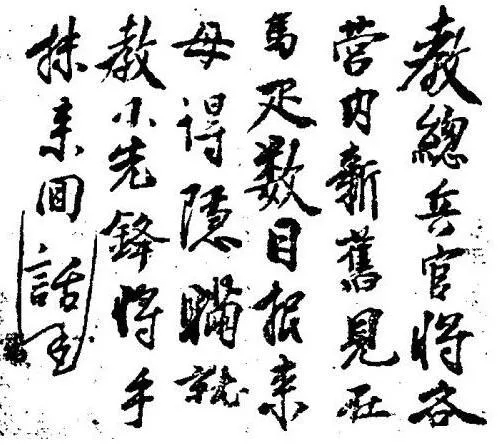 教總兵官將各
营内新舊見在
馬疋数目报来
毋得隱瞞就
教小先鋒將手
抹来囬話